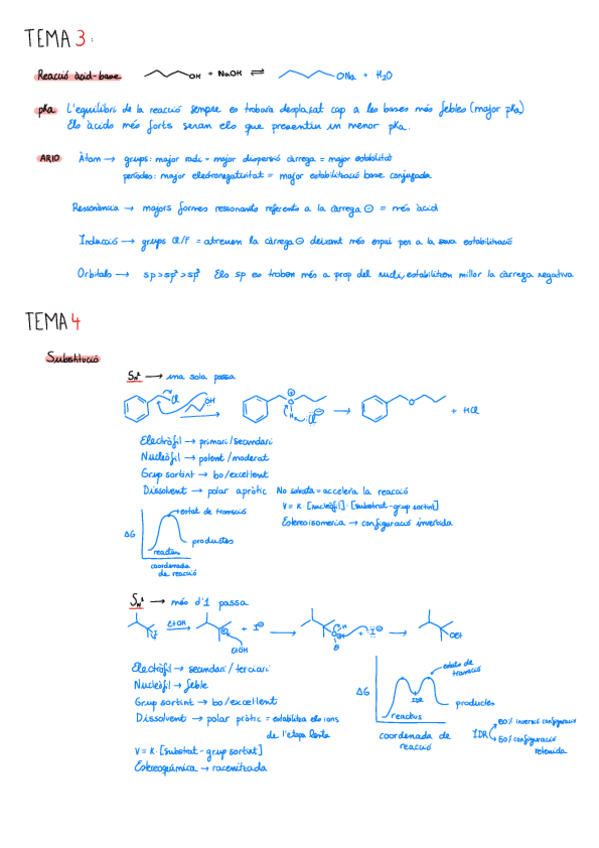 TEMA 3:
Reacció àcid-base OH + NaOH ⇌ ONa + H2O
pKa L'equilibri de la reacció sempre es trobarà desplaçat cap a les bases més febles (major pKa)
Els àcids més forts seran els que presentin un menor pKa.
ARIO Àtom → grups: major radi = major dispersió càrrega = major estabilitat
períodes: major electronegativitat = major estabilització base conjugada
Ressonància → majors formes ressonants referents a la càrrega ⊖ = més àcid
Inducció → grups Cl/F = atreuen la càrrega ⊖ deixant més espai per a la seva estabilització
Orbitals → sp>sp²>sp³ Els sp es troben més a prop del nucli, estabilitzen millor la càrrega negativa
TEMA 4
Substitució
SN² → una sola passa
Cl OH O ⊕ H :Cl ⊖ → O + HCl
Electròfil → primari/secundari
Nucleòfil → potent/moderat
Grup sortint → bo/excel·lent
Dissolvent → polar apròtic No solvata = accelera la reacció
V = K · [nucleòfil] · [substrat-grup sortint]
Estereoisomeria → configuració invertida
ΔG estat de transició
productes
reactius
coordenada de reacció
SN¹ → més d'1 passa
I EtOH → ⊕ + I⊖ → + I⊖ → OEt
EtOH
Electròfil → secundari/terciari
Nucleòfil → feble
Grup sortint → bo/excel·lent
Dissolvent → polar pròtic = estabilitza els ions
de l'etapa lenta
V = K · [substrat-grup sortint]
Estereoquímica → racemitzada
ΔG estats de transició
IDR
productes
reactius
coordenada de reacció
IDR 50% inversió configuració
50% configuració retenida